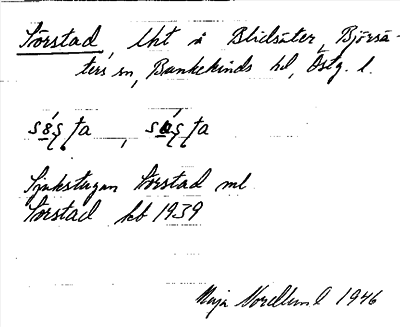 Störstad, lht å Blidsäter, Björsä-
ters sn, Bankekinds hd, Östg. l.
Sjukstugan Storstad ml
Storstad kb 1939
Maja Nordlund 1946